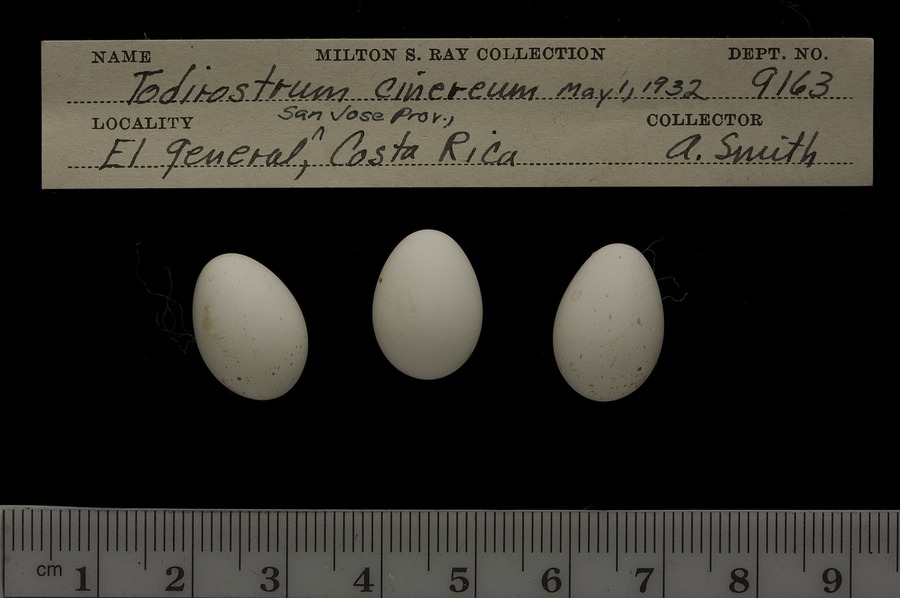 NAME MILTON S. RAY COLLECTION DEPT. NO.
Todirostrum cinereum May 1, 1932 9163
San Jose Prov.,
LOCALITY COLLECTOR
El General, ^ Costa Rica A. Smith
cm 1 2 3 4 5 6 7 8 9